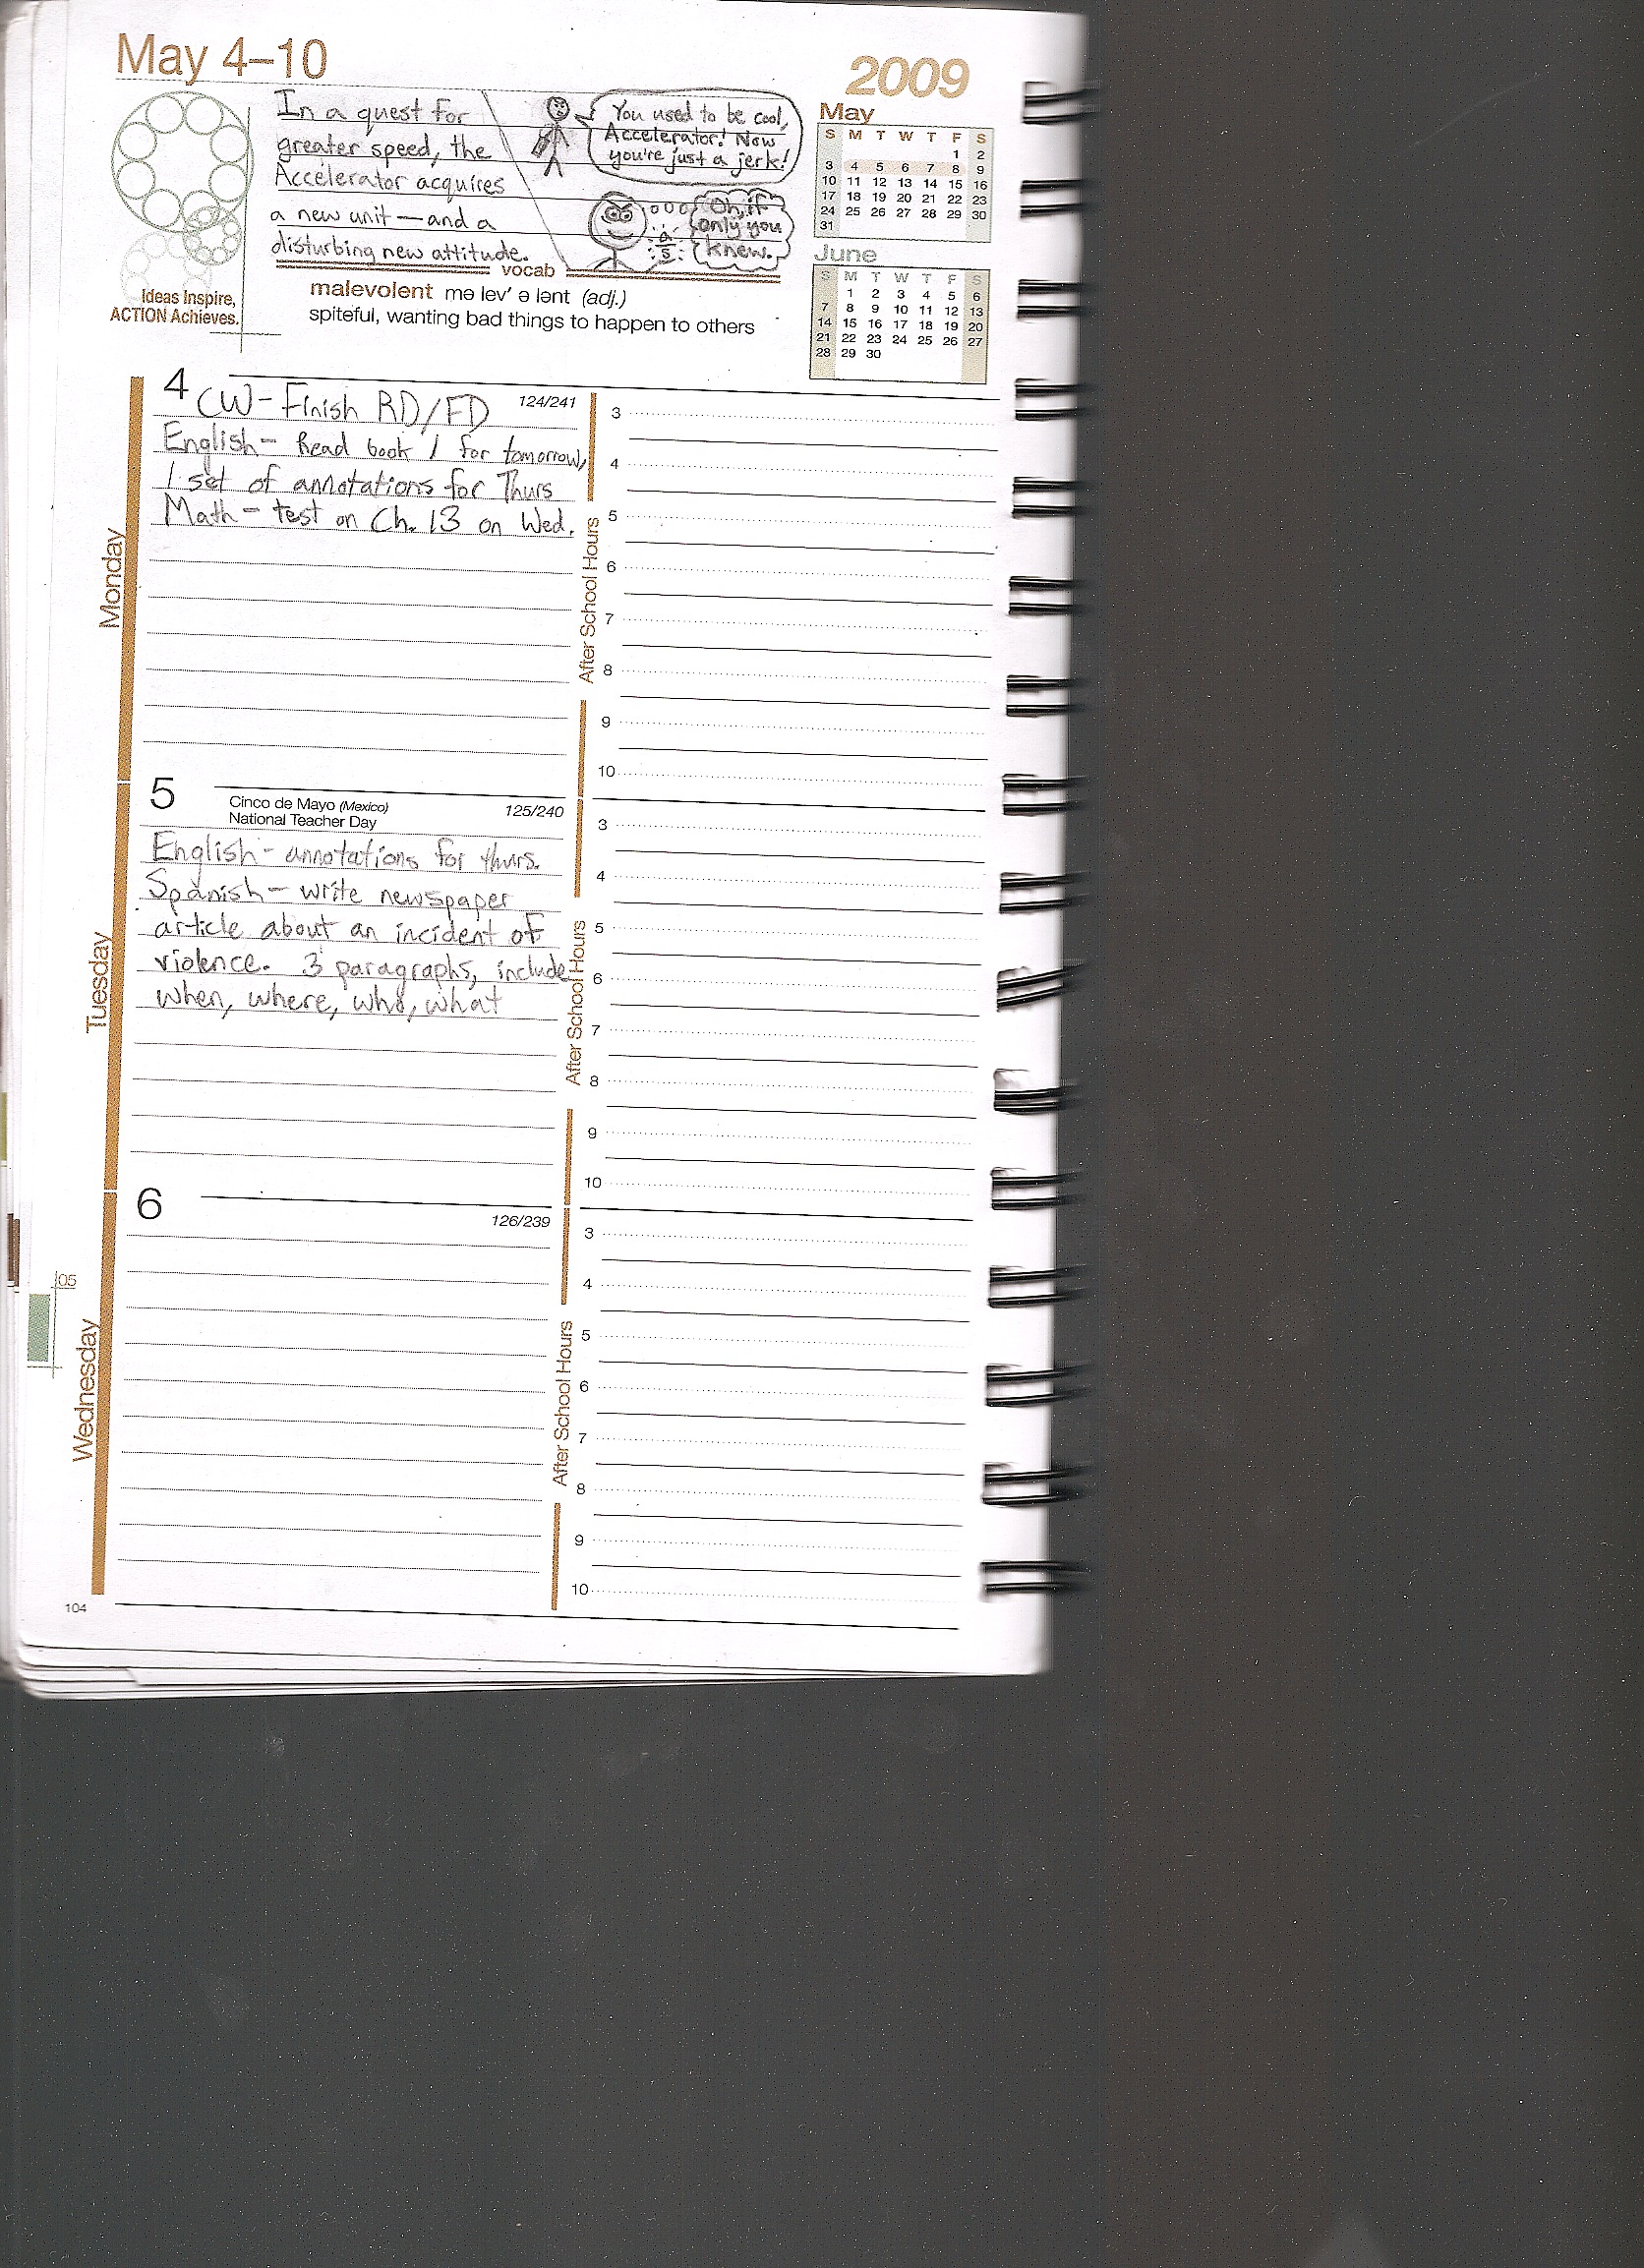 May 4–10
2009
In a quest for
greater speed, the
Accelerator acquires
a new unit — and a
disturbing new attitude.
You used to be cool,
Accelerator! Now
you're just a jerk!
Oh, if
only you
knew.
a
s
Ideas Inspire,
ACTION Achieves.
vocab
malevolent mə lev′ ə lənt (adj.)
spiteful, wanting bad things to happen to others
May
S M T W T F S
1 2
3 4 5 6 7 8 9
10 11 12 13 14 15 16
17 18 19 20 21 22 23
24 25 26 27 28 29 30
31
June
S M T W T F S
1 2 3 4 5 6
7 8 9 10 11 12 13
14 15 16 17 18 19 20
21 22 23 24 25 26 27
28 29 30
Monday
4
124/241
CW- Finish RD/FD
English- Read book 1 for tomorrow,
1 set of annotations for Thurs
Math- test on Ch. 13 on Wed.
After School Hours
3
4
5
6
7
8
9
10
Tuesday
5
Cinco de Mayo (Mexico)
National Teacher Day
125/240
English- annotations for thurs.
Spanish- write newspaper
article about an incident of
violence. 3 paragraphs, include
when, where, who, what
After School Hours
3
4
5
6
7
8
9
10
Wednesday
6
126/239
After School Hours
3
4
5
6
7
8
9
10
05
104